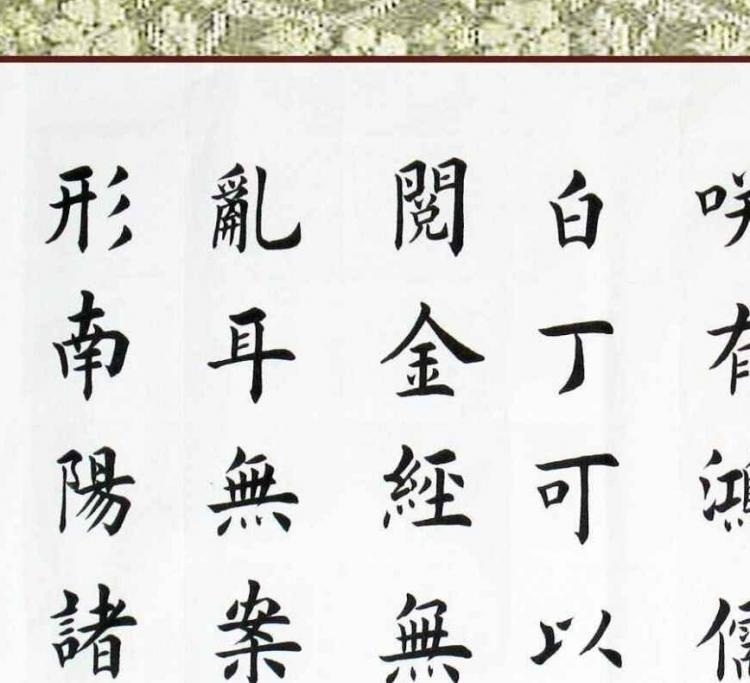 咲有鴻儒
白丁可以
閱金經無
亂耳無案
形南陽諸